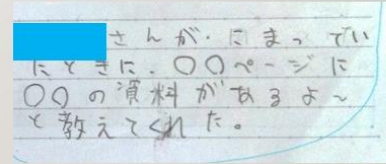 さんが、にまってい
たときに、〇〇ページに
〇〇の資料があるよ～
と教えてくれた。